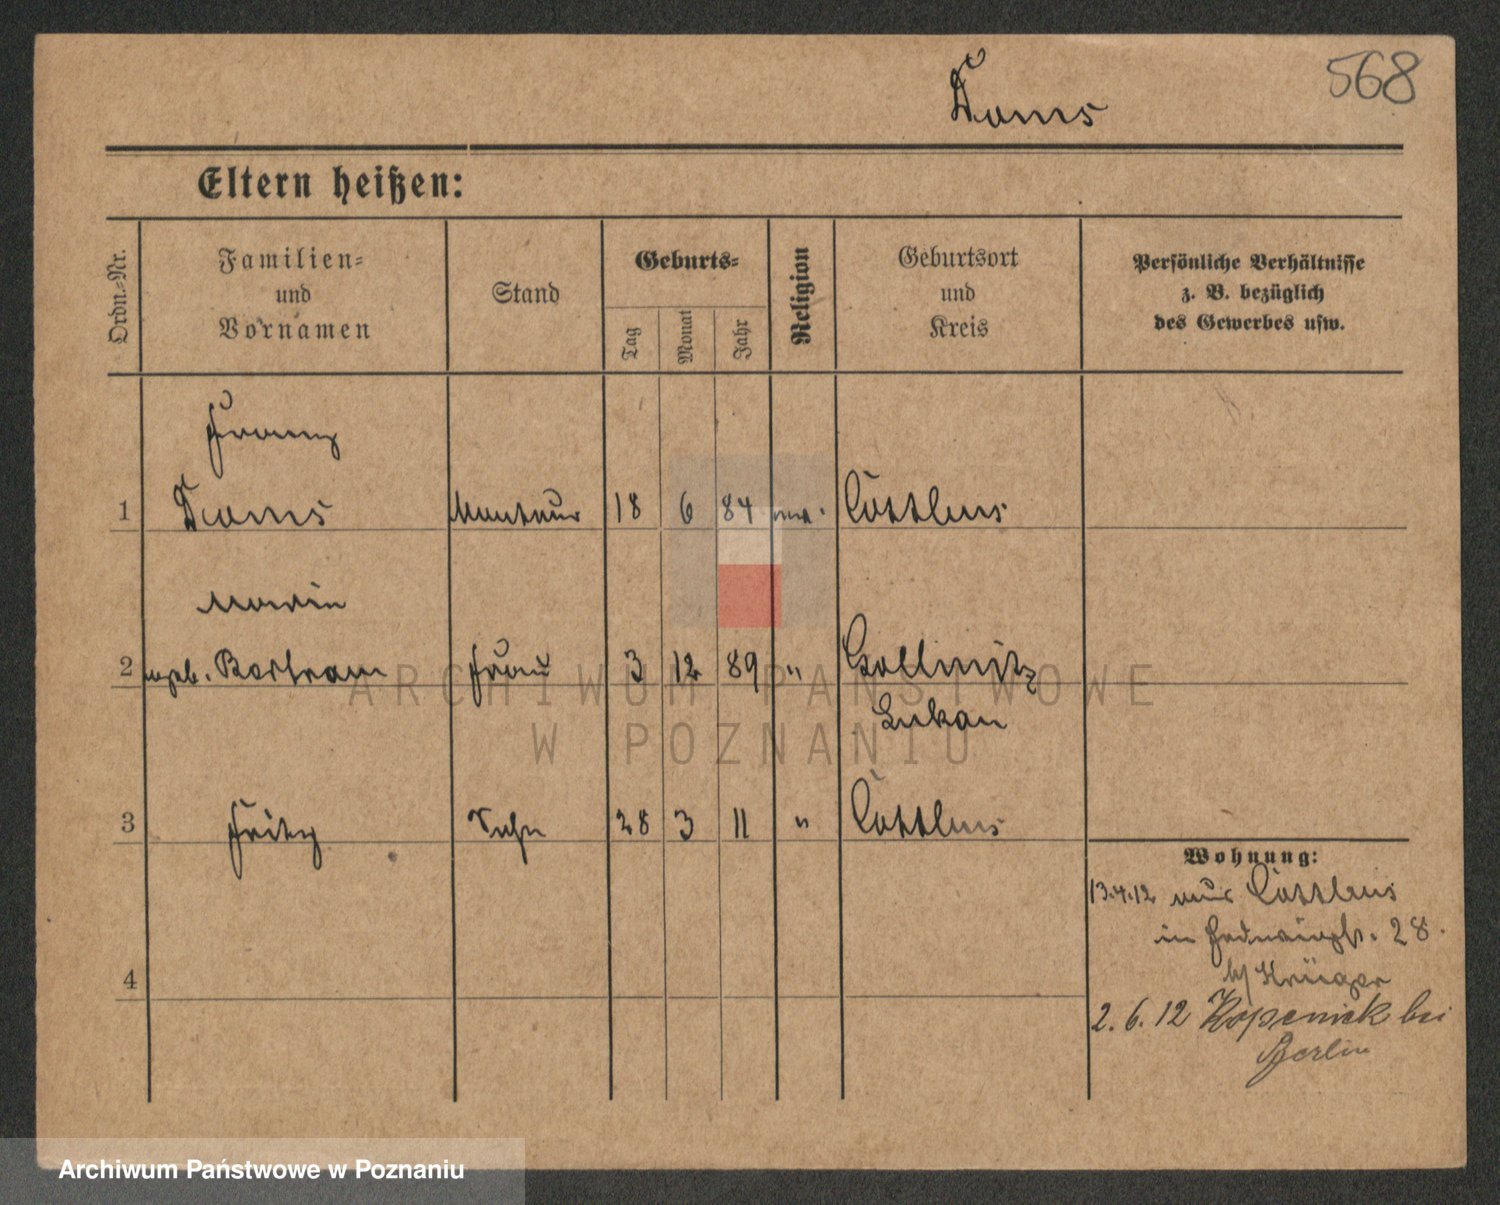 568
Doms
Eltern heißen:
Ordn.-Nr.
Familien-
und
Vornamen
Stand
Geburts-
Tag
Monat
Jahr
Religion
Geburtsort
und
Kreis
Persönliche Verhältnisse
z. B. bezüglich
des Gewerbes usw.
Franz
1 Doms Monteur 18 6 84 Cottbus
Marie
2 geb. Bertram Frau 3 12 89 " Gollmitz
Lukau
3 Fritz Sohn 28 3 11 " Cottbus
Wohnung:
13.4.12 aus Cottbus
in 28.
b/ Krüger
4
2.6.12 Köpenick bei
Berlin
ARCHIWUM PAŃSTWOWE
W POZNANIU
Archiwum Państwowe w Poznaniu